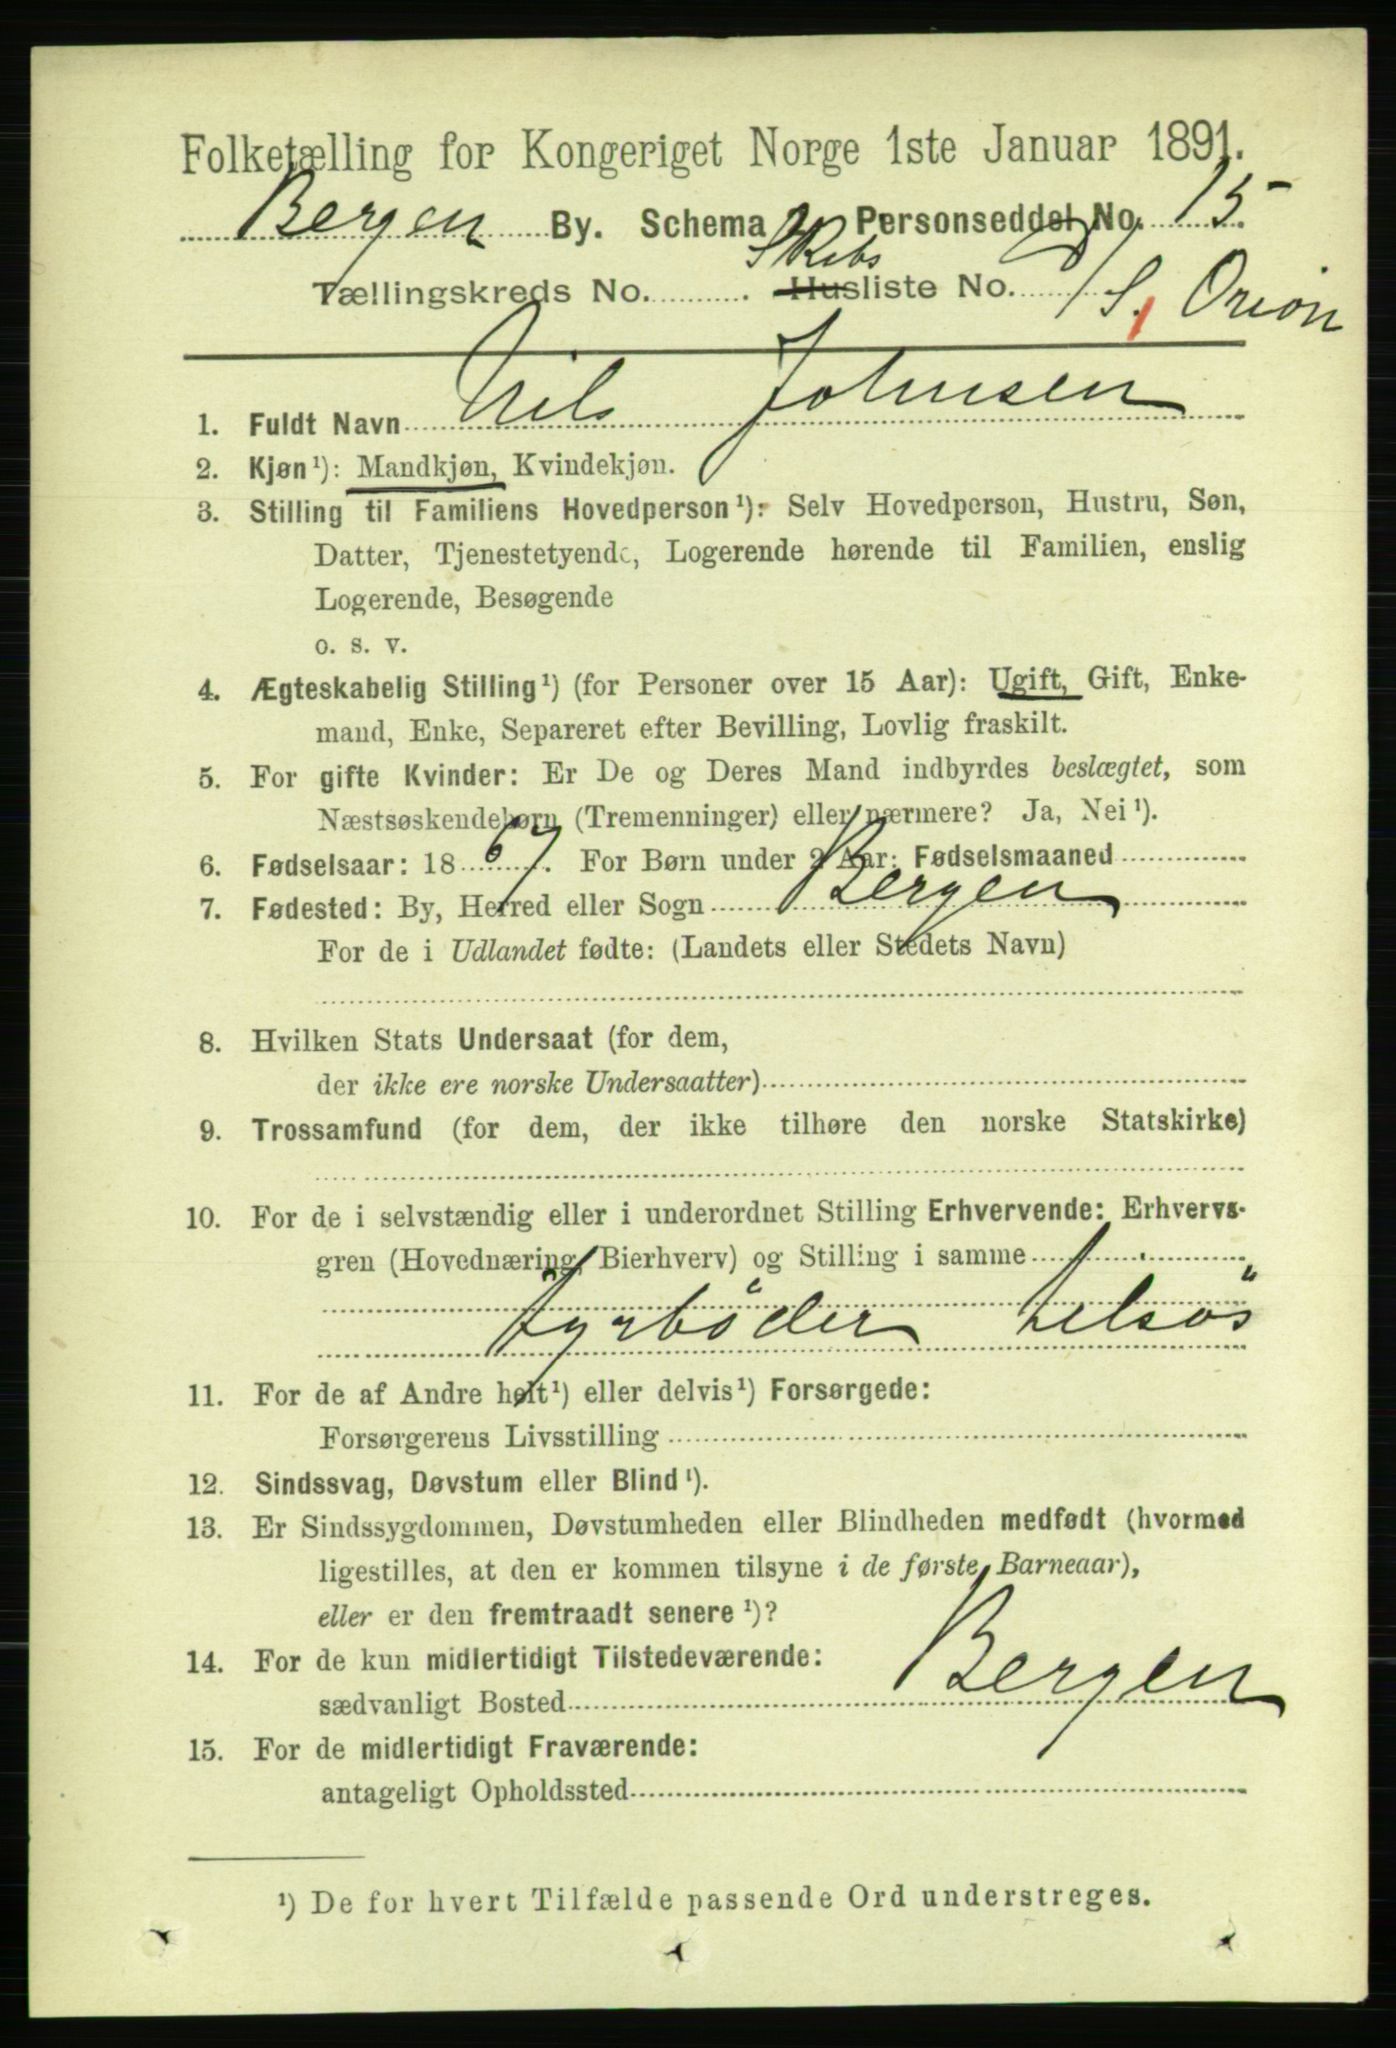 Folketælling for Kongeriget Norge 1ste Januar 1891.
Bergen By. Schema 2. Personseddel No. 15
Tællingskreds No. Husliste No. D/S. Orion
Skibs
1. Fuldt Navn Nils Johnsen
2. Kjøn¹): Mandkjøn, Kvindekjøn.
3. Stilling til Familiens Hovedperson¹): Selv Hovedperson, Hustru, Søn,
Datter, Tjenestetyende, Logerende hørende til Familien, enslig
Logerende, Besøgende
o. s. v.
4. Ægteskabelig Stilling¹) (for Personer over 15 Aar): Ugift, Gift, Enke-
mand, Enke, Separeret efter Bevilling, Lovlig fraskilt.
5. For gifte Kvinder: Er De og Deres Mand indbyrdes beslægtet, som
Næstsøskendebørn (Tremenninger) eller nærmere? Ja, Nei¹).
6. Fødselsaar: 1867. For Børn under 2 Aar: Fødselsmaaned
7. Fødested: By, Herred eller Sogn Bergen
For de i Udlandet fødte: (Landets eller Stedets Navn)
8. Hvilken Stats Undersaat (for dem,
der ikke ere norske Undersaatter)
9. Trossamfund (for dem, der ikke tilhøre den norske Statskirke)
10. For de i selvstændig eller i underordnet Stilling Erhvervende: Erhvervs-
gren (Hovednæring, Bierhverv) og Stilling i samme
Fyrbøder tilsøs
11. For de af Andre helt¹) eller delvis¹) Forsørgede:
Forsørgerens Livsstilling
12. Sindssvag, Døvstum eller Blind¹).
13. Er Sindssygdommen, Døvstumheden eller Blindheden medfødt (hvormed
ligestilles, at den er kommen tilsyne i de første Barneaar),
eller er den fremtraadt senere¹)?
14. For de kun midlertidigt Tilstedeværende:
sædvanligt Bosted Bergen
15. For de midlertidigt Fraværende:
antageligt Opholdssted
¹) De for hvert Tilfælde passende Ord understreges.